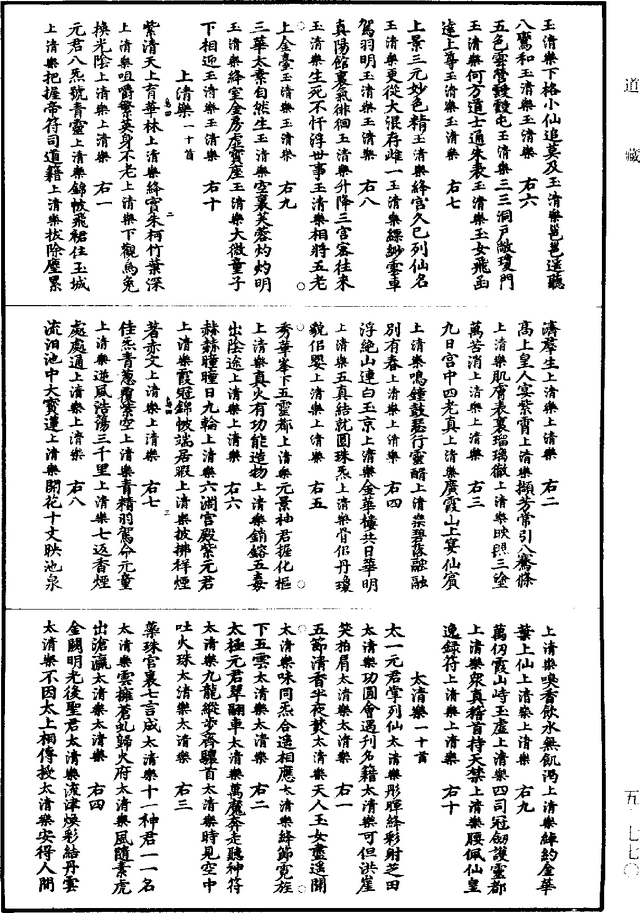 道藏
玉清樂下格小仙追莫及玉清樂邕邕遥聽
八鸞和玉清樂玉清樂　右六
五色雲營鼓鼓屯玉清樂三三洞戶敞瓊門
玉清樂何方道士通朱表玉清樂玉女飛函
達上尊玉清樂玉清樂　右七
上景三元妙色精玉清樂絳宫久已列仙名
玉清樂更從大混存雌一玉清樂縹緲雲車
駕羽明玉清樂玉清樂　右八
真陽館裏氣徘徊玉清樂升降三宫客往来
玉清樂生死不忏浮世事玉清樂相將五老
上金臺玉清樂玉清樂　右九
三華太素自然生玉清樂空裏芙蓉灼灼明
玉清樂絳室金房虚寳座玉清樂大微童子
下相迎玉清樂玉清樂　右十
上清樂一十首
紫清天上有華林上清樂絳宫朱柯竹葉深
上清樂咀嚼繁英身不老上清樂下觀烏兔
換光陰上清樂上清樂　右一
元君八炁號青靈上清樂錦帔飛裙住玉城
上清樂把握帝符司道籍上清樂拔除塵累
濟羣生上清樂上清樂　右二
高上皇人宴紫霄上清樂擷芳常引八騫條
上清樂肌膚表裏瑠璃徹上清樂映照三塗
萬苦消上清樂上清樂　右三
九日宫中四老真上清樂廣霞山上宴仙賓
上清樂鳴鐘鼓瑟行靈醑上清樂碧落融融
別有春上清樂上清樂　右四
浮絶山連白玉京上清樂金華樓共日華明
上清樂五真結就圓珠炁上清樂骨侣丹瓊
貌侣嬰上清樂上清樂　右五
秀華峯下五靈都上清樂元景神君握化樞
上清樂真火有功能造物上清樂銷鎔五毒
出陰途上清樂上清樂　右六
赫赫曈曈日九輪上清樂六淵宫殿紫元君
上清樂霞冠錦帔端居暇上清樂披拂祥煙
著赤文上清樂上清樂　右七
佳炁青葱覆紫空上清樂青精羽駕命元童
上清樂逆風浩蕩三千里上清樂七返香煙
處處通上清樂上清樂　右八
流汨池中大寳蓮上清樂開花十丈映池泉
上清樂喚香飲水無飢渴上清樂綽約金華
葉上仙上清樂上清樂　右九
萬仞霞山峙玉虚上清樂四司冠劒護靈都
上清樂衆真稽首持天禁上清樂腰佩仙皇
逸錄符上清樂上清樂　右十
太清樂一十首
太一元君掌列仙太清樂彤暉絳彩射芝田
太清樂功圓會遇刊名籍太清樂可但洪崖
笑拍肩太清樂太清樂　右一
五節清香半夜焚太清樂天人玉女盡遥聞
太清樂味同炁合遠相應太清樂絳節霓旌
下五雲太清樂太清樂　右二
太極元君翠翮車太清樂萬魔奔走聽神符
太清樂九龍縱步齊驤首太清樂時見空中
吐火珠太清樂太清樂　右三
蘂珠宫裏七言成太清樂十一神君一一名
太清樂雲擁蒼虬歸火府太清樂風隨素虎
出滄瀛太清樂太清樂　右四
金闕明光後聖君太清樂流津煥彩結丹雲
太清樂不因太上相傳授太清樂安得人間
五・七七〇